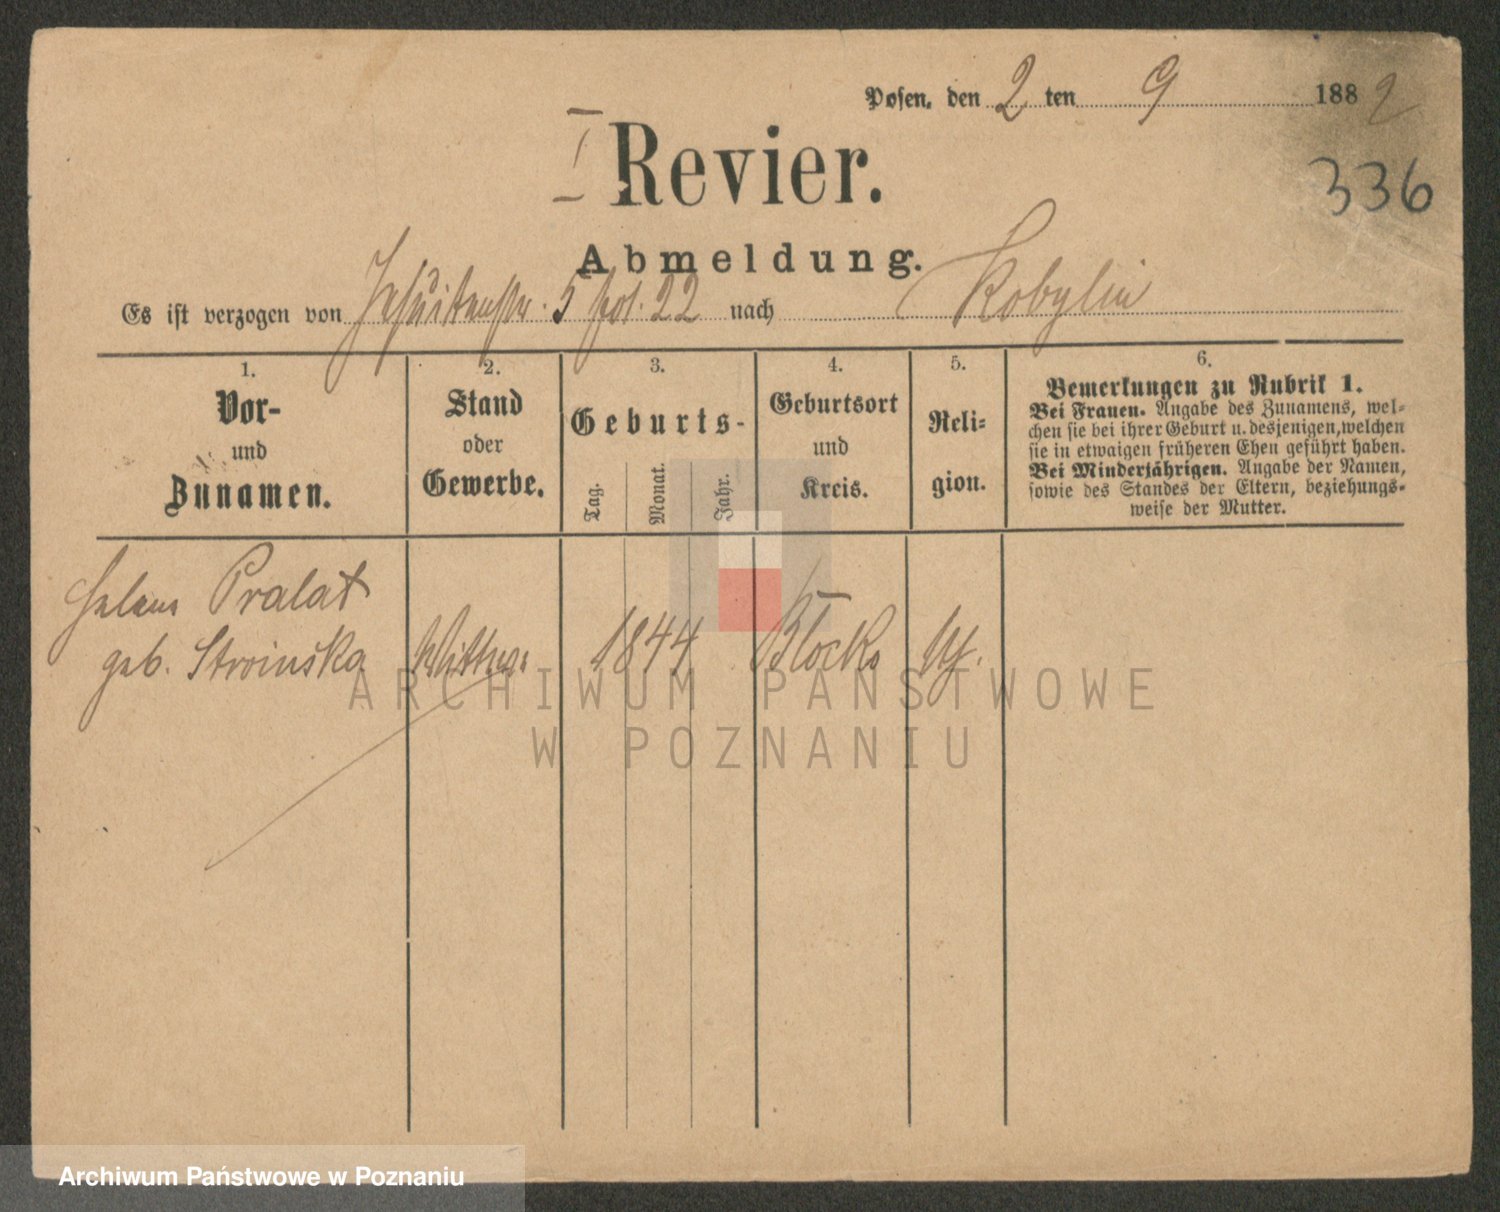 Posen, den 2 ten 9 1882
I Revier.
336
Abmeldung.
Es ist verzogen von Jesuitenstr. 5 fol. 22 nach Kobylin
1.
Vor-
und
Zunamen.
2.
Stand
oder
Gewerbe.
3.
Geburts-
Tag.
Monat.
Jahr.
4.
Geburtsort
und
Kreis.
5.
Reli-
gion.
6.
Bemerkungen zu Rubrik 1.
Bei Frauen. Angabe des Zunamens, wel-
chen sie bei ihrer Geburt u. desjenigen, welchen
sie in etwaigen früheren Ehen geführt haben.
Bei Minderjährigen. Angabe der Namen,
sowie des Standes der Eltern, beziehungs-
weise der Mutter.
Helena Pralat
geb. Stroinska Wittwe 1844
ARCHIWUM PAŃSTWOWE
W POZNANIU
Archiwum Państwowe w Poznaniu